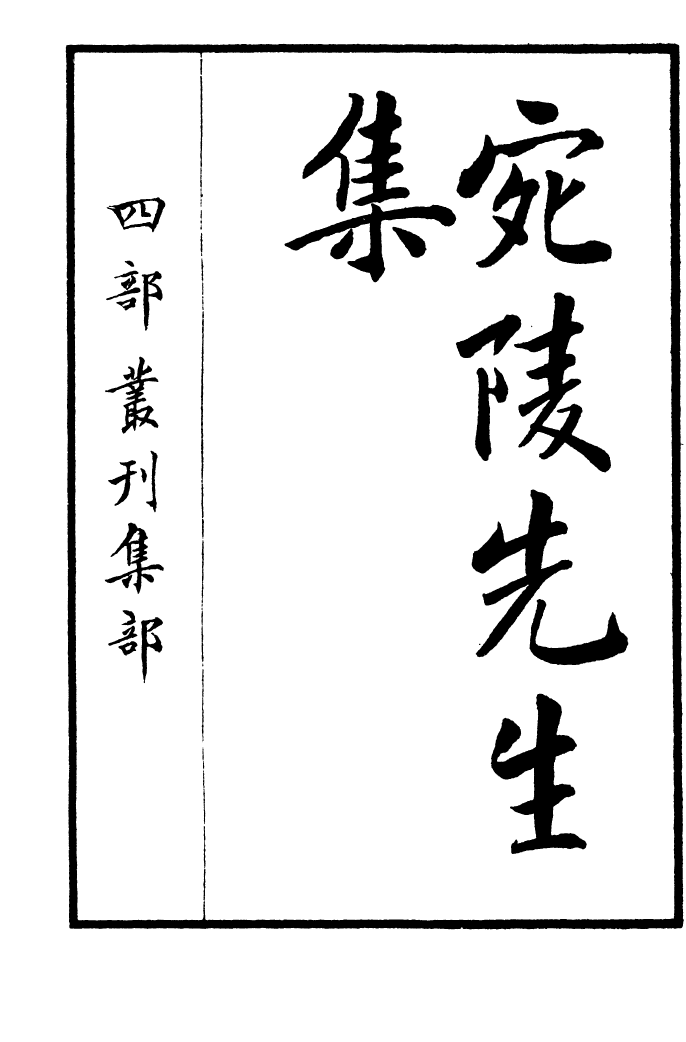 宛陵先生
集
四部叢刊集部